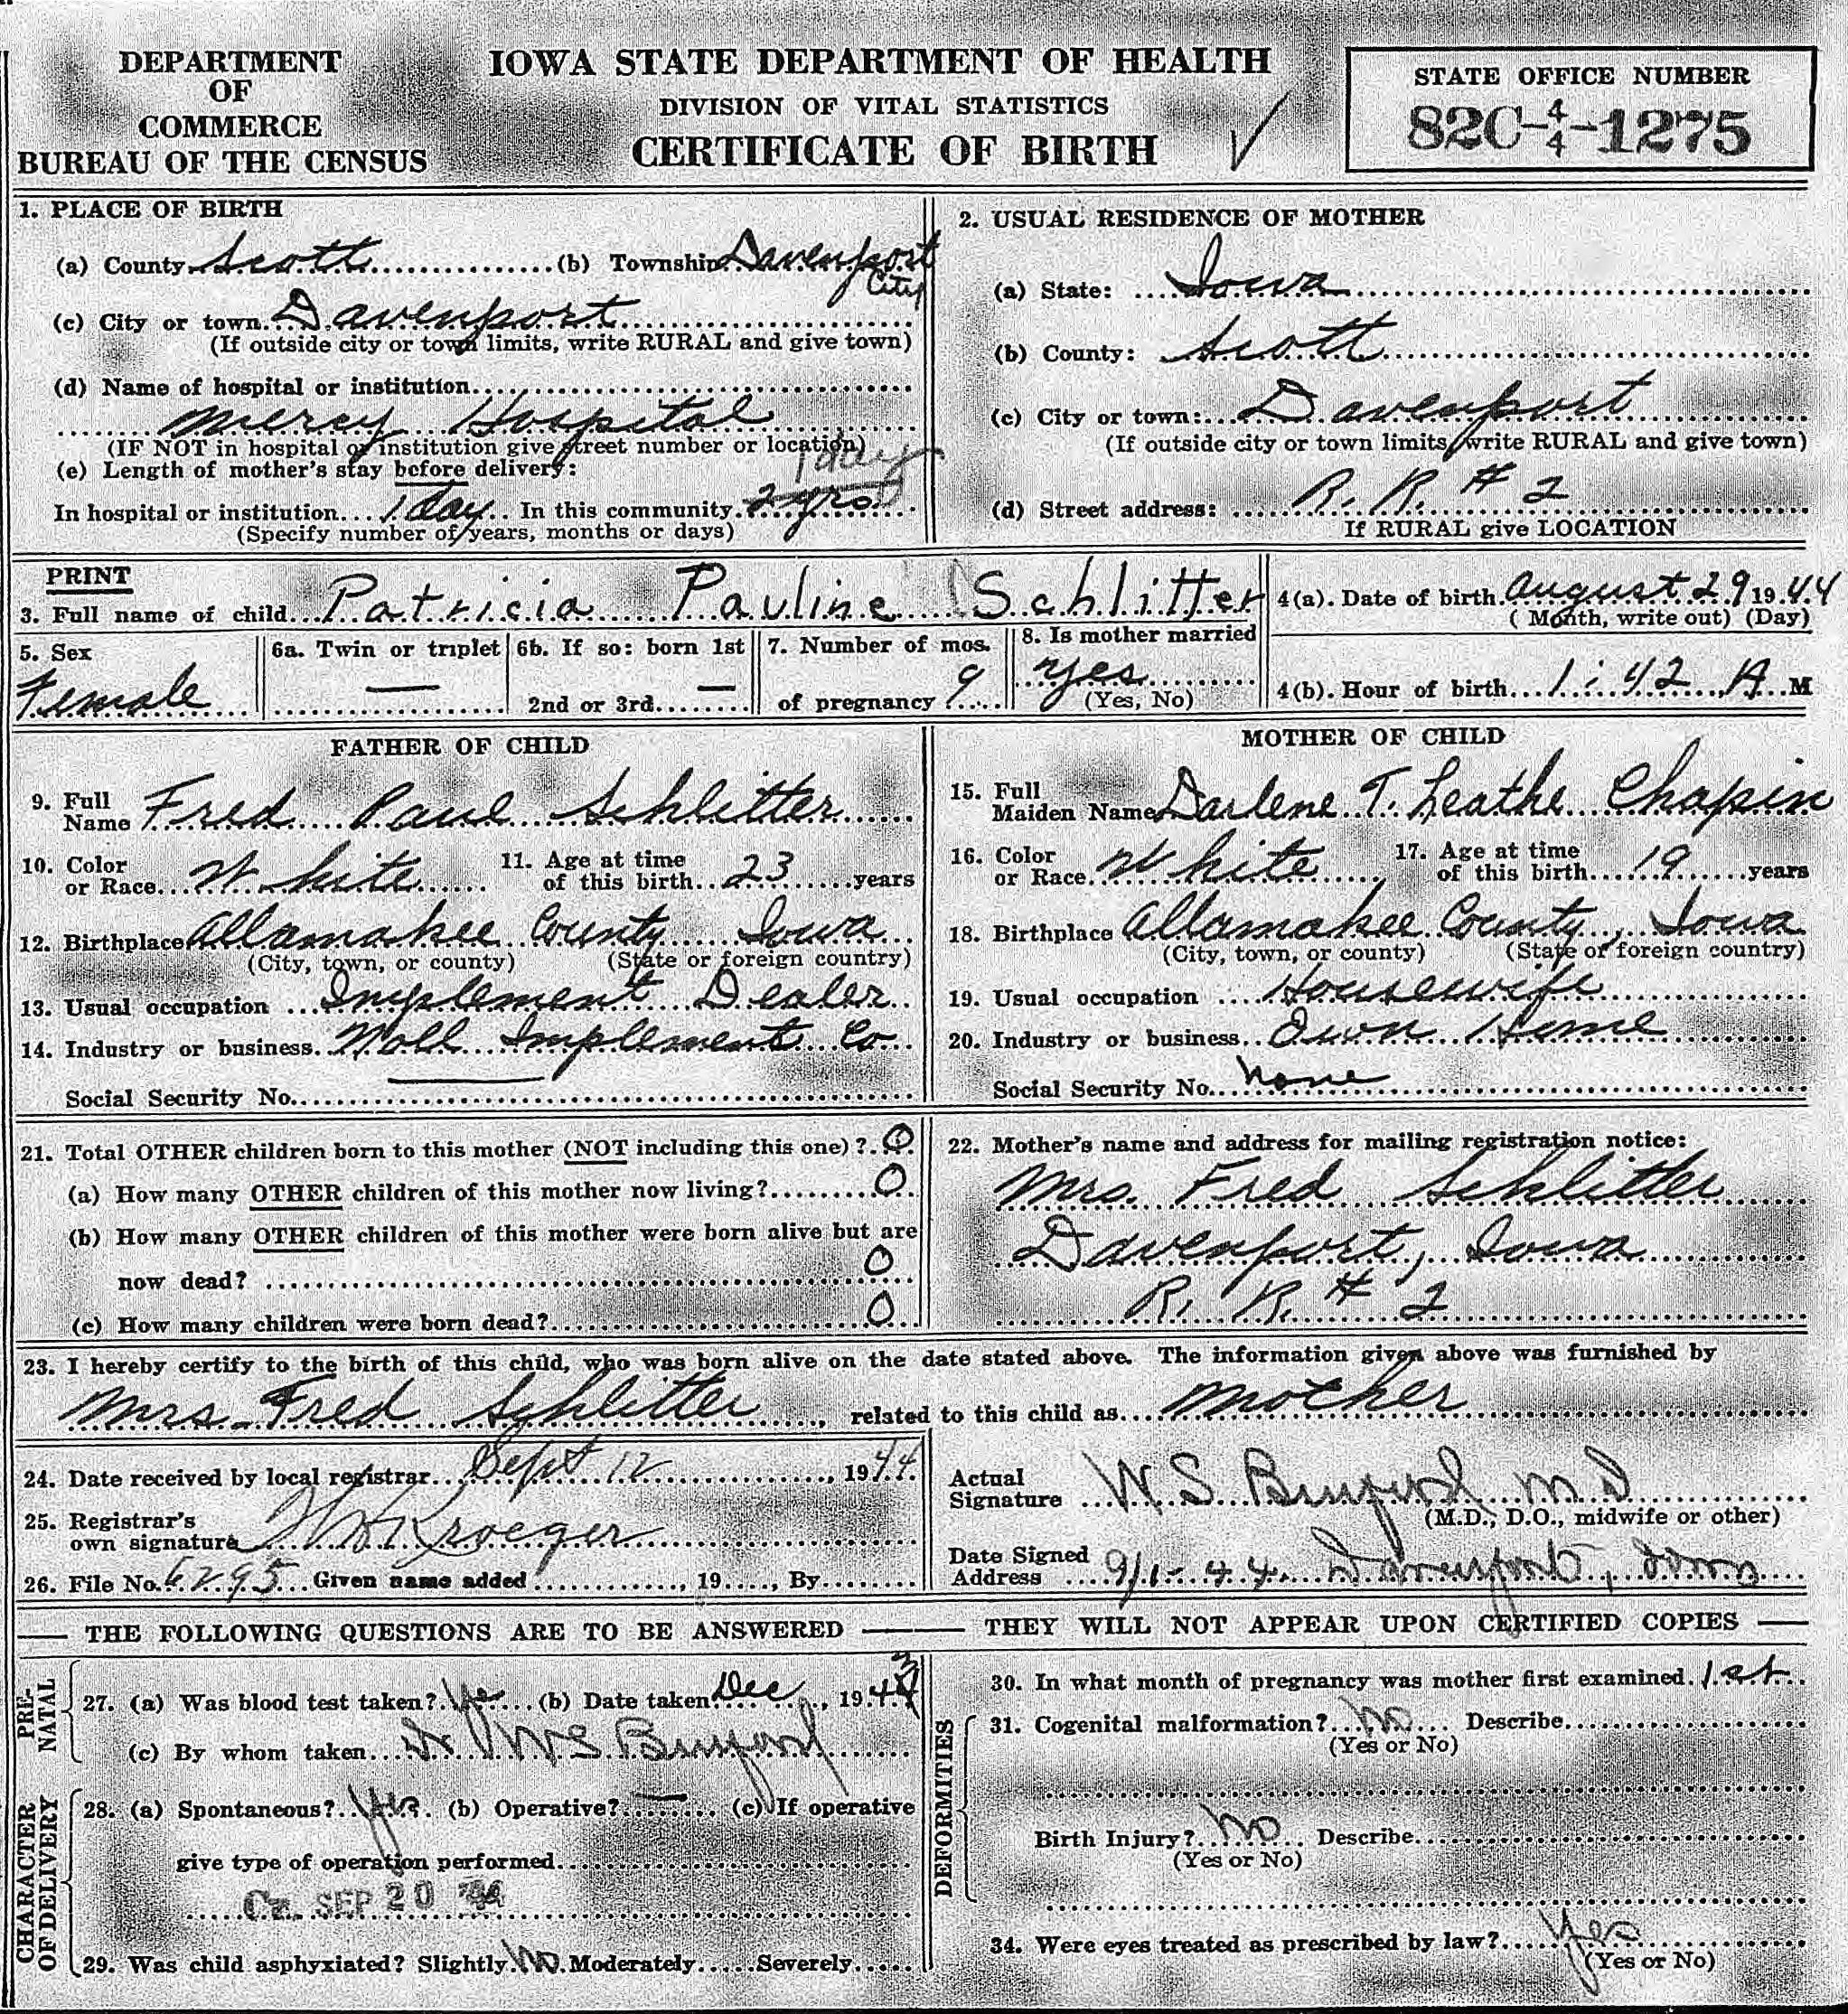 DEPARTMENT
OF
COMMERCE
BUREAU OF THE CENSUS
IOWA STATE DEPARTMENT OF HEALTH
DIVISION OF VITAL STATISTICS
CERTIFICATE OF BIRTH
STATE OFFICE NUMBER
82C-4/4-1275
1. PLACE OF BIRTH
(a) County Scott (b) Township Davenport
City
(c) City or town Davenport
(If outside city or town limits, write RURAL and give town)
(d) Name of hospital or institution
Mercy Hospital
(IF NOT in hospital or institution give street number or location)
(e) Length of mother's stay before delivery: 1 day
In hospital or institution 1 day In this community 2 yrs
(Specify number of years, months or days)
2. USUAL RESIDENCE OF MOTHER
(a) State: Iowa
(b) County: Scott
(c) City or town: Davenport
(If outside city or town limits, write RURAL and give town)
(d) Street address: R. R. # 2
If RURAL give LOCATION
PRINT
3. Full name of child Patricia Pauline Schlitter
4(a). Date of birth August 29 1944
(Month, write out) (Day)
5. Sex
Female
6a. Twin or triplet —
6b. If so: born 1st
2nd or 3rd —
7. Number of mos.
of pregnancy ? 9
8. Is mother married
yes
(Yes, No)
4(b). Hour of birth 1:42 A M
FATHER OF CHILD
9. Full
Name Fred Paul Schlitter
10. Color
or Race White
11. Age at time
of this birth 23 years
12. Birthplace Allamakee County Iowa
(City, town, or county) (State or foreign country)
13. Usual occupation Implement Dealer
14. Industry or business Implement Co
Social Security No. —
MOTHER OF CHILD
15. Full
Maiden Name Darlene T. Leathe Chapin
16. Color
or Race White
17. Age at time
of this birth 19 years
18. Birthplace Allamakee County, Iowa
(City, town, or county) (State or foreign country)
19. Usual occupation Housewife
20. Industry or business Own Home
Social Security No. none
21. Total OTHER children born to this mother (NOT including this one)? 0
(a) How many OTHER children of this mother now living? 0
(b) How many OTHER children of this mother were born alive but are
now dead? 0
(c) How many children were born dead? 0
22. Mother's name and address for mailing registration notice:
Mrs. Fred Schlitter
Davenport, Iowa
R. R. # 2
23. I hereby certify to the birth of this child, who was born alive on the date stated above. The information given above was furnished by
Mrs. Fred Schlitter, related to this child as mother
24. Date received by local registrar Sept 12, 1944
25. Registrar's
own signature Kroeger
26. File No. 6295 Given name added , 19 , By
Actual
Signature W S Binford MD
(M.D., D.O., midwife or other)
Date Signed
Address 9/1-44 Davenport, Iowa
THE FOLLOWING QUESTIONS ARE TO BE ANSWERED — THEY WILL NOT APPEAR UPON CERTIFIED COPIES
PRE-
NATAL
27. (a) Was blood test taken? Yes (b) Date taken Dec, 1943
(c) By whom taken Dr W S Binford
CHARACTER
OF DELIVERY
28. (a) Spontaneous? Yes (b) Operative? — (c) If operative
give type of operation performed
SEP 20 '44
29. Was child asphyxiated? Slightly No Moderately Severely
30. In what month of pregnancy was mother first examined 1st
DEFORMITIES
31. Cogenital malformation? No Describe
(Yes or No)
Birth Injury? No Describe
(Yes or No)
34. Were eyes treated as prescribed by law? Yes
(Yes or No)